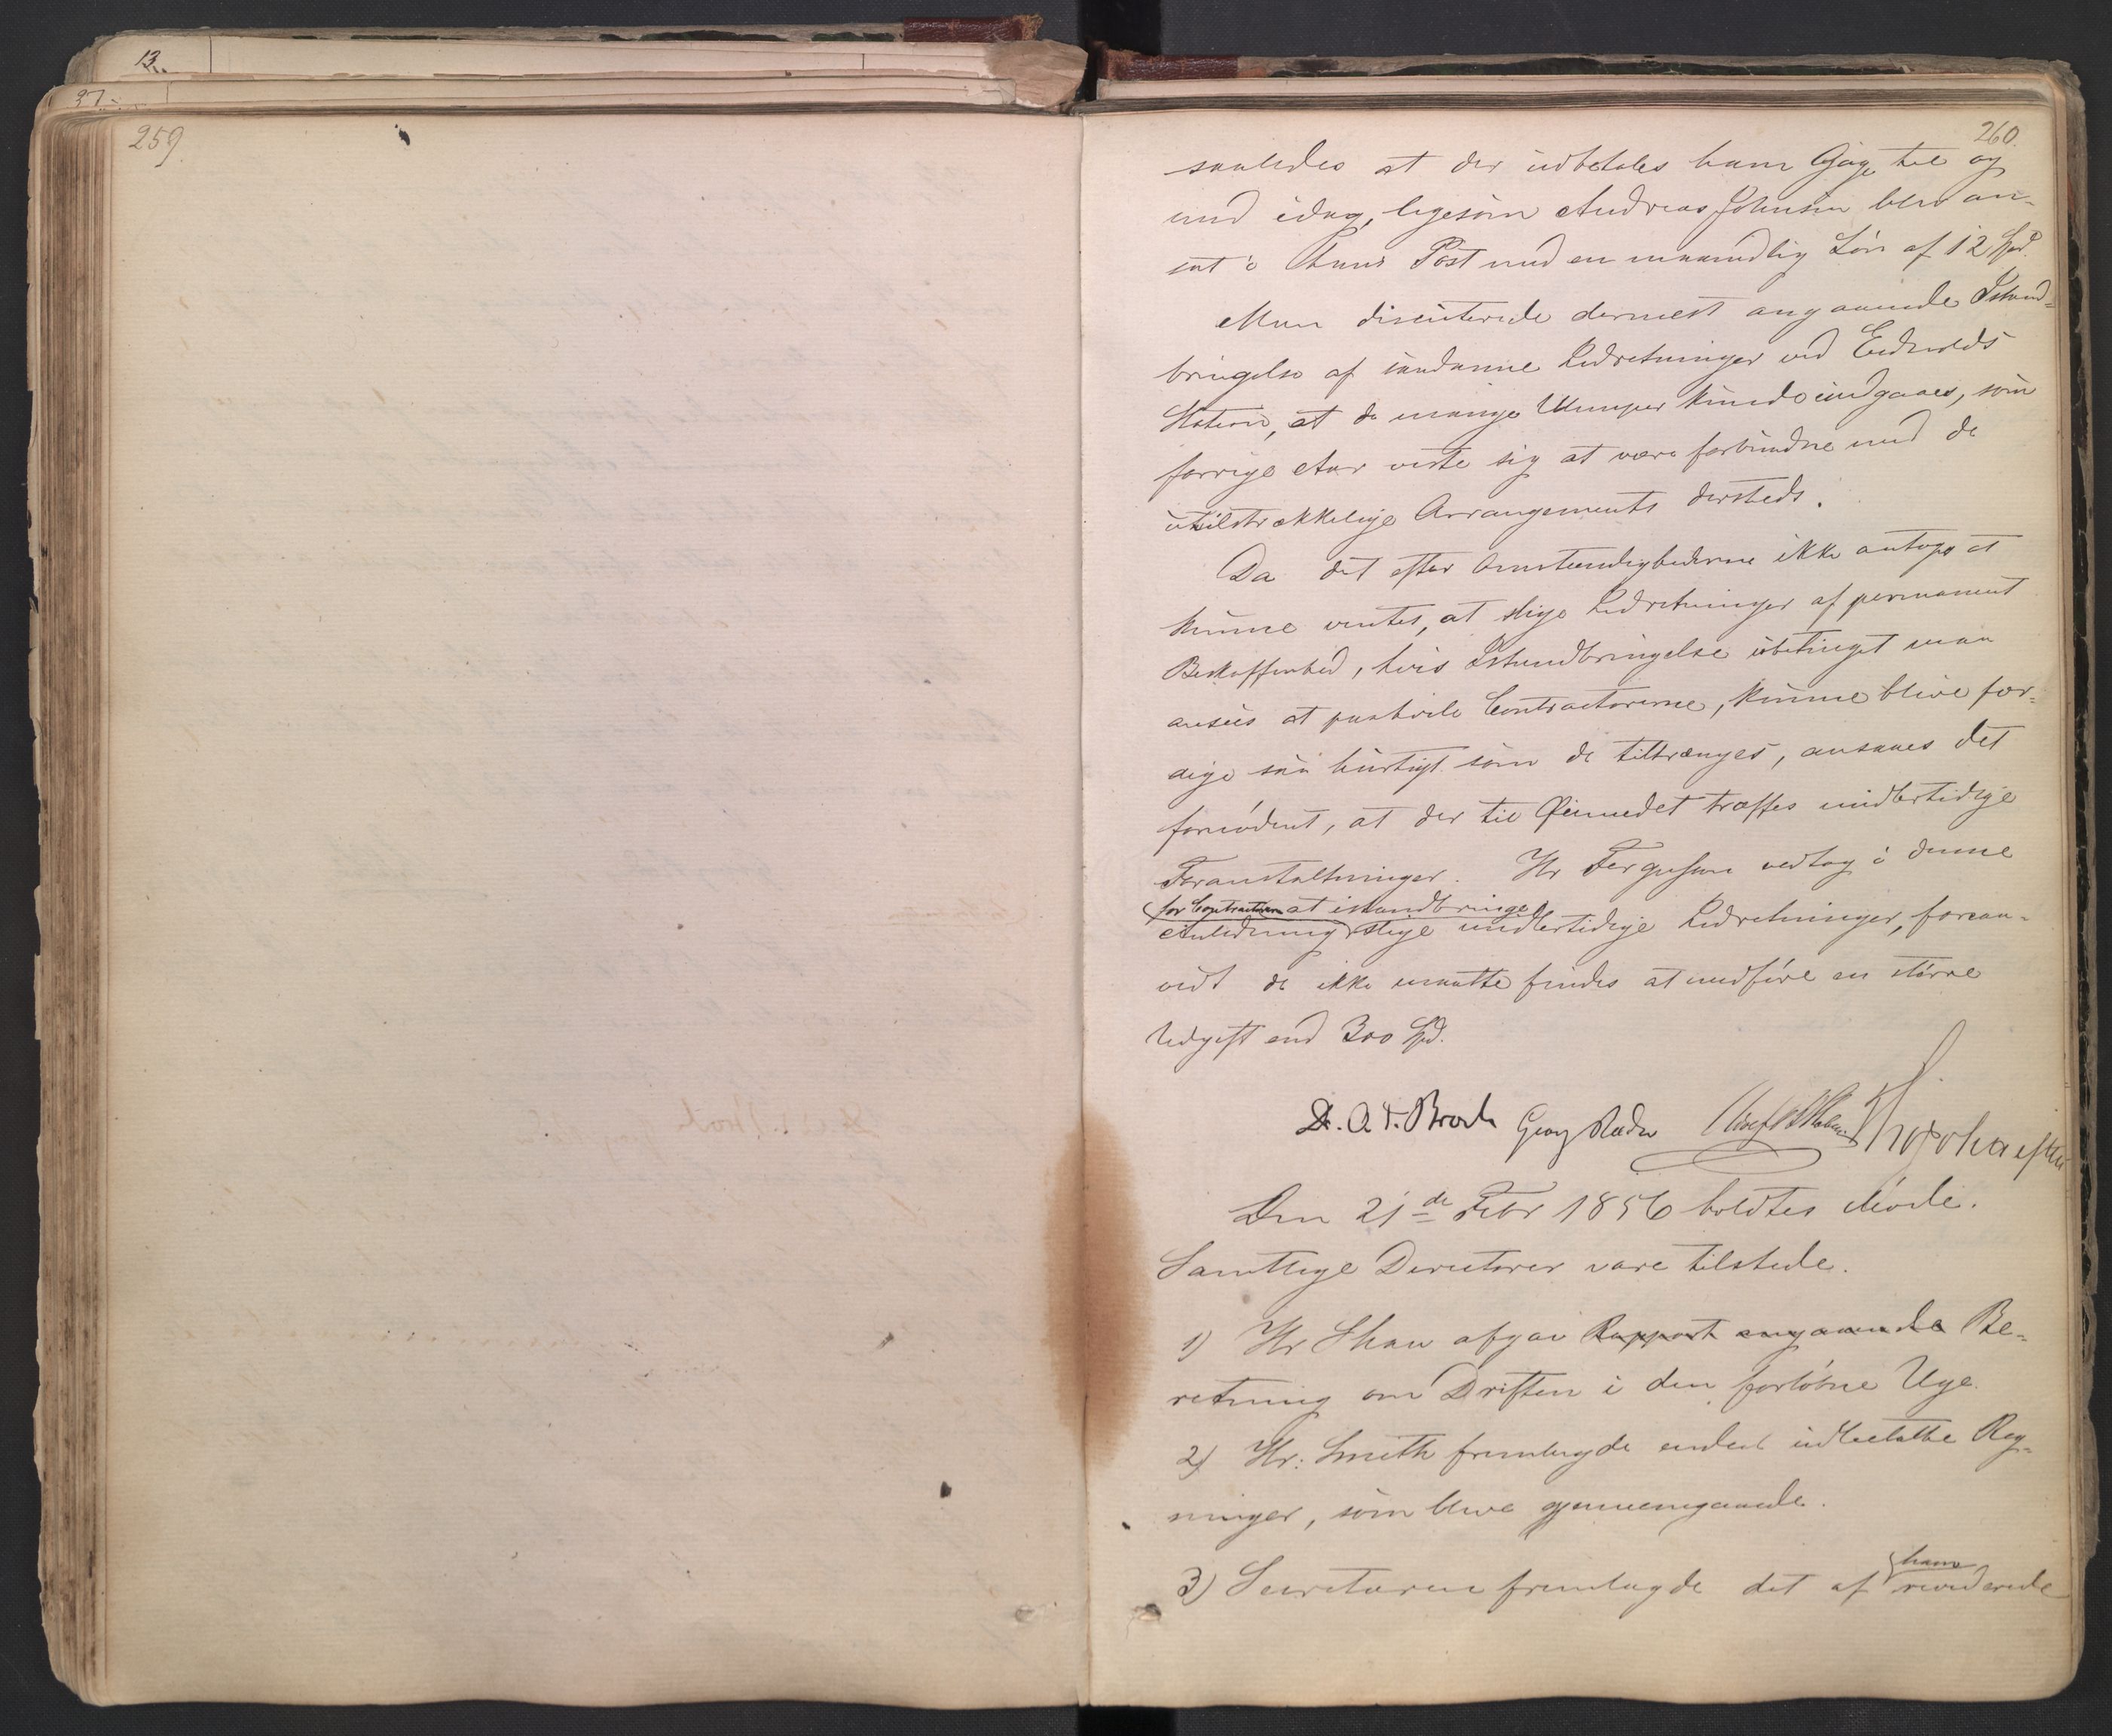 13.
27
259.
260.
saaledes at der udbetales ham Gage til og
med idag, ligesom Andreas Johnsen blev an-
sat i hans Post med en maanedlig Løn af 12 Spd.
Man discuterede dernæst angaaende Istand-
bringelse af saadanne Indretninger ved Eidsvolds
Station, at de mange Ulemper kunde undgaaes, som
forrige Aar viste sig at være forbundne med de
utilstrækkelige Arrangements dersteds.
Da det efter Omstændighederne ikke antoges at
kunne ventes, at slige Indretninger af permanent
Beskaffenhed, hvis Istandbringelse ubetinget maa
ansees at paahvile Contractorerne, kunne blive fær-
dige saa hurtigt som de tiltrænges, ansaaes det
fornødent, at der til Øiemedet træffes midlertidige
Foranstaltninger. Hr Ferguson vedtog i denne
for Contractorerne at istandbringe
Anledning slige midlertidige Indretninger, forsaa-
vidt de ikke maatte findes at medføre en større
Udgift end 300 Spd.
Dr. O. J. Broch Georg Ræder
Den 21de Febr 1856 holdtes Møde.
Samtlige Directører vare tilstede.
1) Hr Shaw afgav Rapport angaaende Be-
retning om Driften i den forløbne Uge.
2) Hr. Smith fremlagde endeel udbetalte Reg-
ninger, som bleve gjennemgaaede.
3) Secretæren fremlagde det af
ham
reviderede